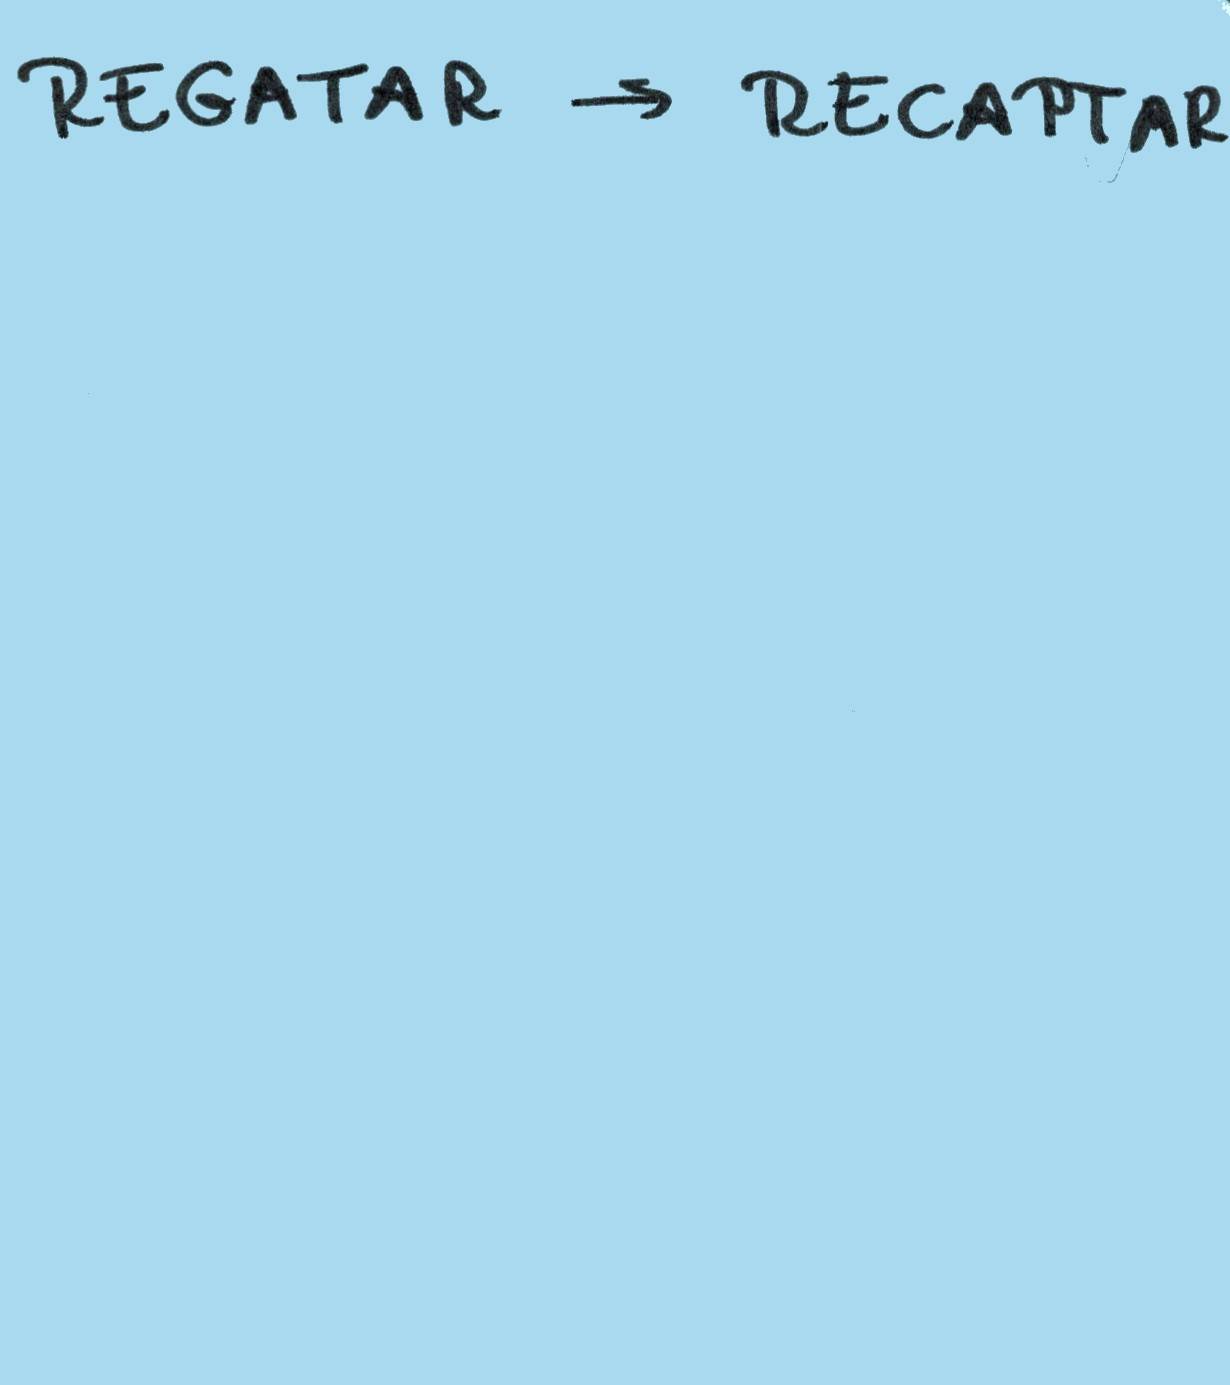 REGATAR → RECAPTAR